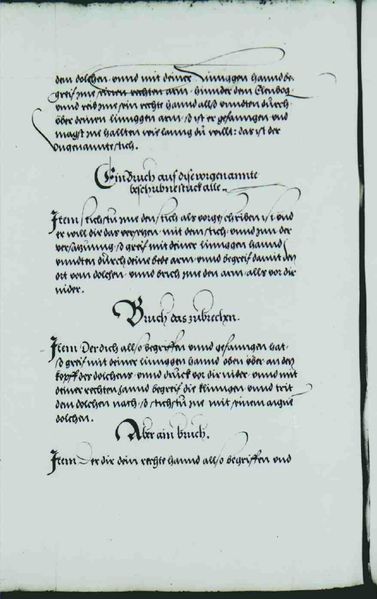 dem dolchen. vnnd mit deiner Linnggen hannd be
greif Ime seinen rechten arm. hinnder dem Elenbog
vnnd reib Ime sein rechte hannd allso vnndten durch
über deinen linnggen arm, so ist er gefanngen vnd
magst Ine hallten wie lanng du willt: das ist der
vngenannt stich.
Ein Bruch auf dise vorgenannte
beschribne stuck alle.
Item stichstu Ime den stich als vorgeschriben ist vnd
er will dir das versetzen mit dem stich vnnd Inn der
versatzung, so greif mit deiner linnggen hannd
vnndten durch seine bede arm vnnd begreif damit den
ort vom dolchen. vnnd brich Ime den arm. alls vor dir
nider.
Bruch das zubrechen.
Item Der dich allso begriffen vnnd gefanngen hat
so greif mit deiner linnggen hannd oben über an den
kopff des dolchens vnnd druck vor dir nider. vnnd mit
deiner rechten hannd begreif die klinngen vnnd trit
dem dolchen nach, so stichstu Ine mit seinem aigne
dolchen.
Aber ain bruch.
Item Der dir dein rechte hannd allso begriffen vnd